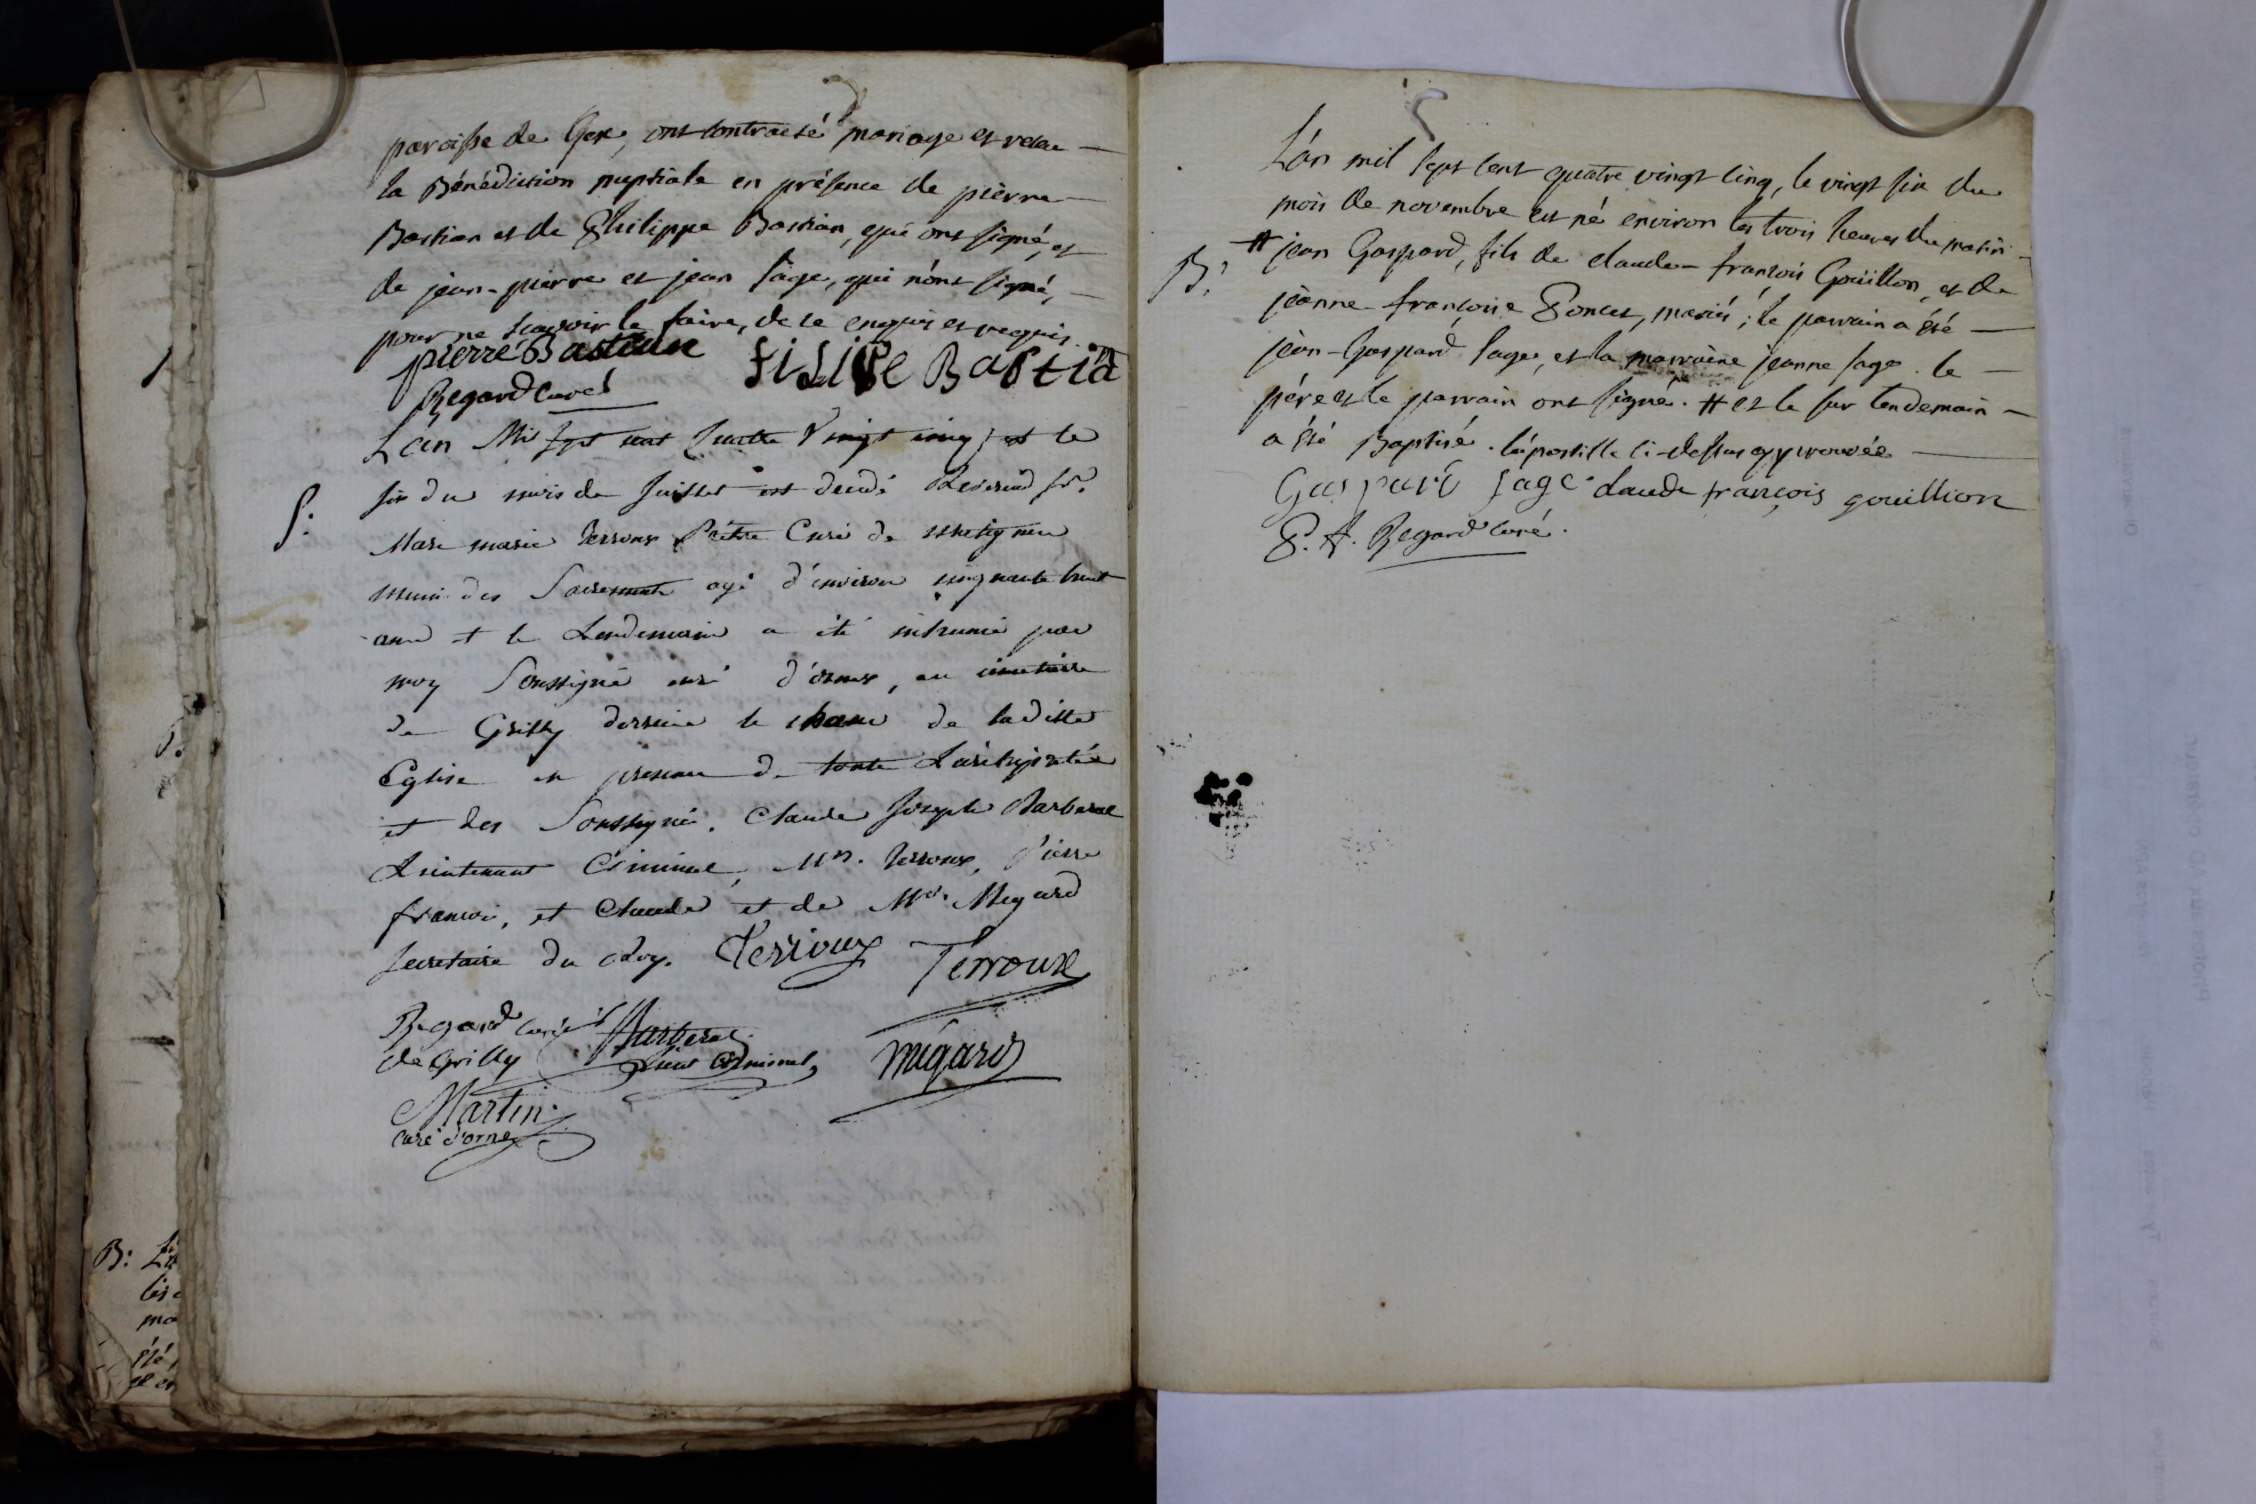 paroisse de Gex, ont contracté mariage et recu
la Bénédiction nuptiale en présence de pièrre
Bastian et de Philippe Bastian, qui ont signé, et
de jean-pierre et jean sage, qui n'ont signé,
pour ne scavoir le faire, de ce enquis et requis.
pierre Bastian filipe Bastian
Regard curé
L'an Mil sept cent quatre Vingt cinq, et le
six du mois de Juillet est decedé Reverend sr.
S:
Marc marie terroux Prêtre Curé de
muni des Sacrements agé d'environ cinquante huit
ans et le Lendemain a été inhumé par
moy Soussigné curé d'ornex, au cimetière
de Grilly derriere le choeur de laditte
Eglise en presence de toute L'archiprêtré
et des Soussignés. Claude Joseph Barberat
Lieutenant Criminel, Mrs. terroux, Pierre
francois, et Claude et de Mr. Megard
secretaire du Roy. Terroux Terroux
Regard curé Barberat
de Grilly lieut criminel mégard
Martin
Curé d'ornex
L'an mil sept cent quatre vingt cinq, le vingt six du
mois de novembre est né environ les trois heures du matin
B: # jean Gaspard, fils de claude-françois Goüillon, et de
jéanne-françoise Poncet, mariés; le parrain a été
jean-Gaspard sage, et la marraine jeanne sage. le
pére et le parrain ont signé. # et le sur lendemain
a été Baptisé. l'apostille ci-dessus approuvée
Gaspard sage claude françois gouillion
P. A. Regard curé.
B: